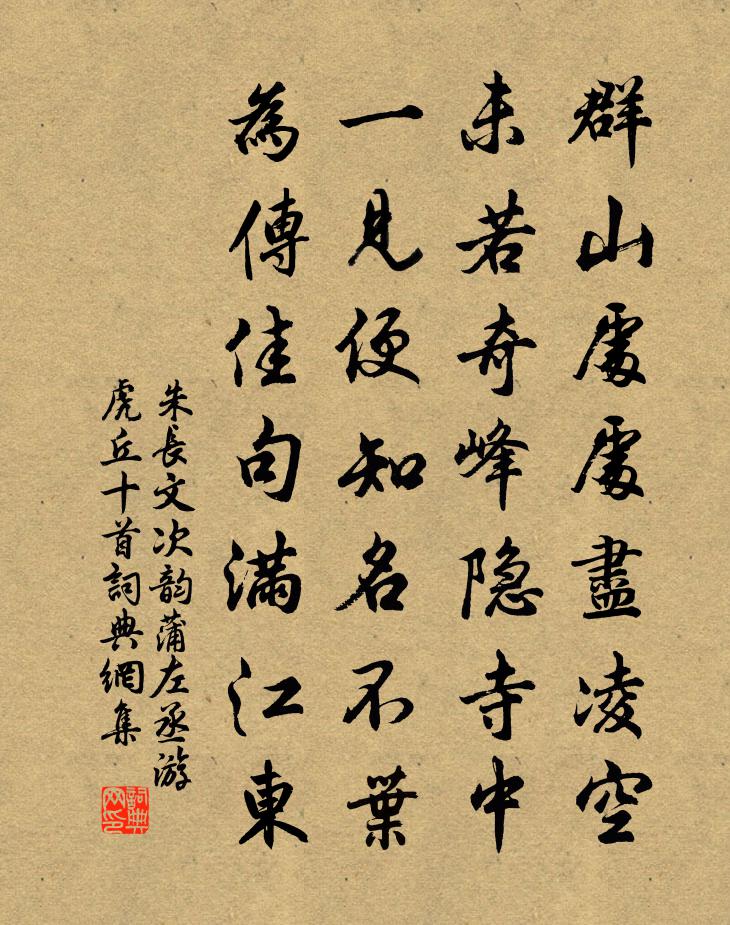 群山處處盡凌空
未若奇峰隐寺中
一見便知名不葉
為傳佳句滿江東
朱長文次韵蒲左丞游
虎丘十首詞典網集
詞典
网印